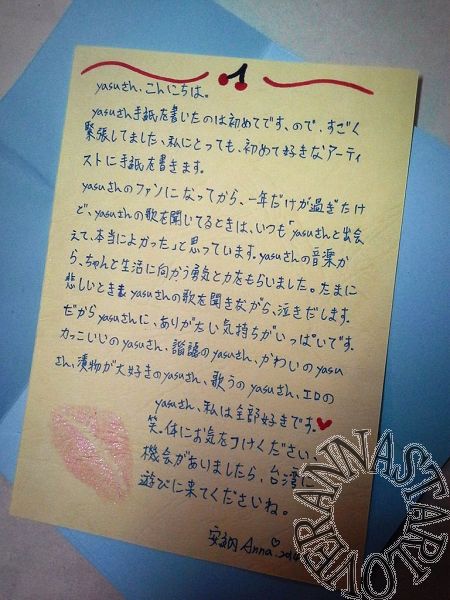 yasuさん、こんにちは。
yasuさん手紙を書いたのは初めてです、ので、すごく
緊張してました、私にとっても、初めて好きなアーティ
ストに手紙を書きます。
yasuさんのファンになってから、一年だけが過ぎたけ
ど、yasuさんの歌を聞いてるときは、いつも「yasuさんと出会
えて、本当によかった」と思っています。yasuさんの音楽か
ら、ちゃんと生活に向かう勇気と力をもらいました。たまに
悲しいときは yasuさんの歌を聞きながら、泣きだします。
だからyasuさんに、ありがたい気持ちがいっぱいです。
カッこいいのyasuさん、諧謔のyasuさん、かわいのyasu
さん、漬物が大好きのyasuさん、歌うのyasuさん、エロの
yasuさん、私は全部好きです。
笑。体にお気をつけください、
機会がありましたら、台湾に
遊びに来てくださいね。
Anna. 201
ANNASTARLOVER